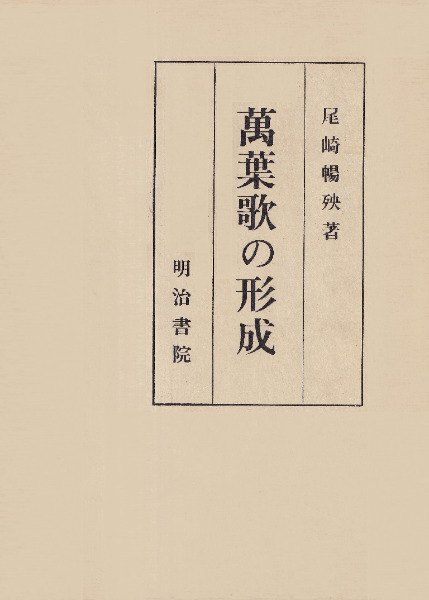 尾崎暢殃著
萬葉歌の形成
明治書院